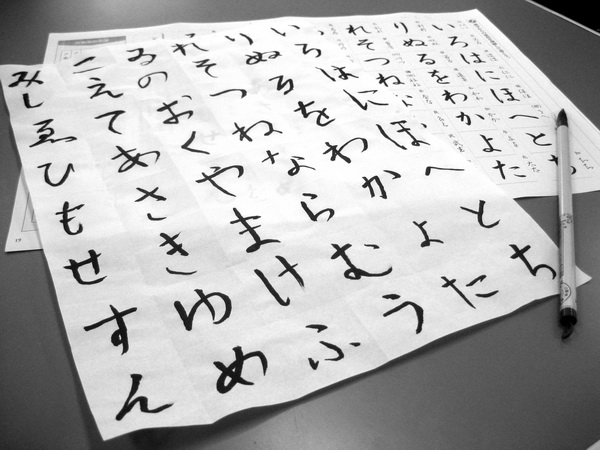 いろはにほへとち
りぬるをわかよた
れそつね
いろはにほへとち
りぬるをわかよた
れそつねならむう
ゐのおくやまけふ
こえてあさきゆめ
みしゑひもせすん